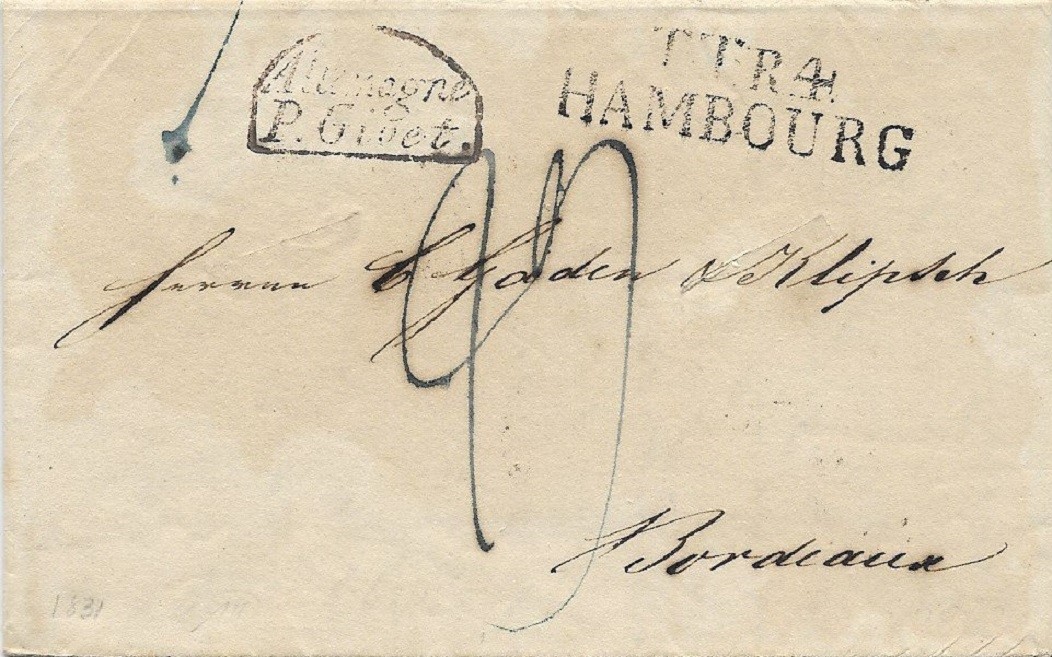 Allemagne
P. Givet.
T.T.R.4.
HAMBOURG
Herren C Gaden & Klipsch
Bordeaux
1831